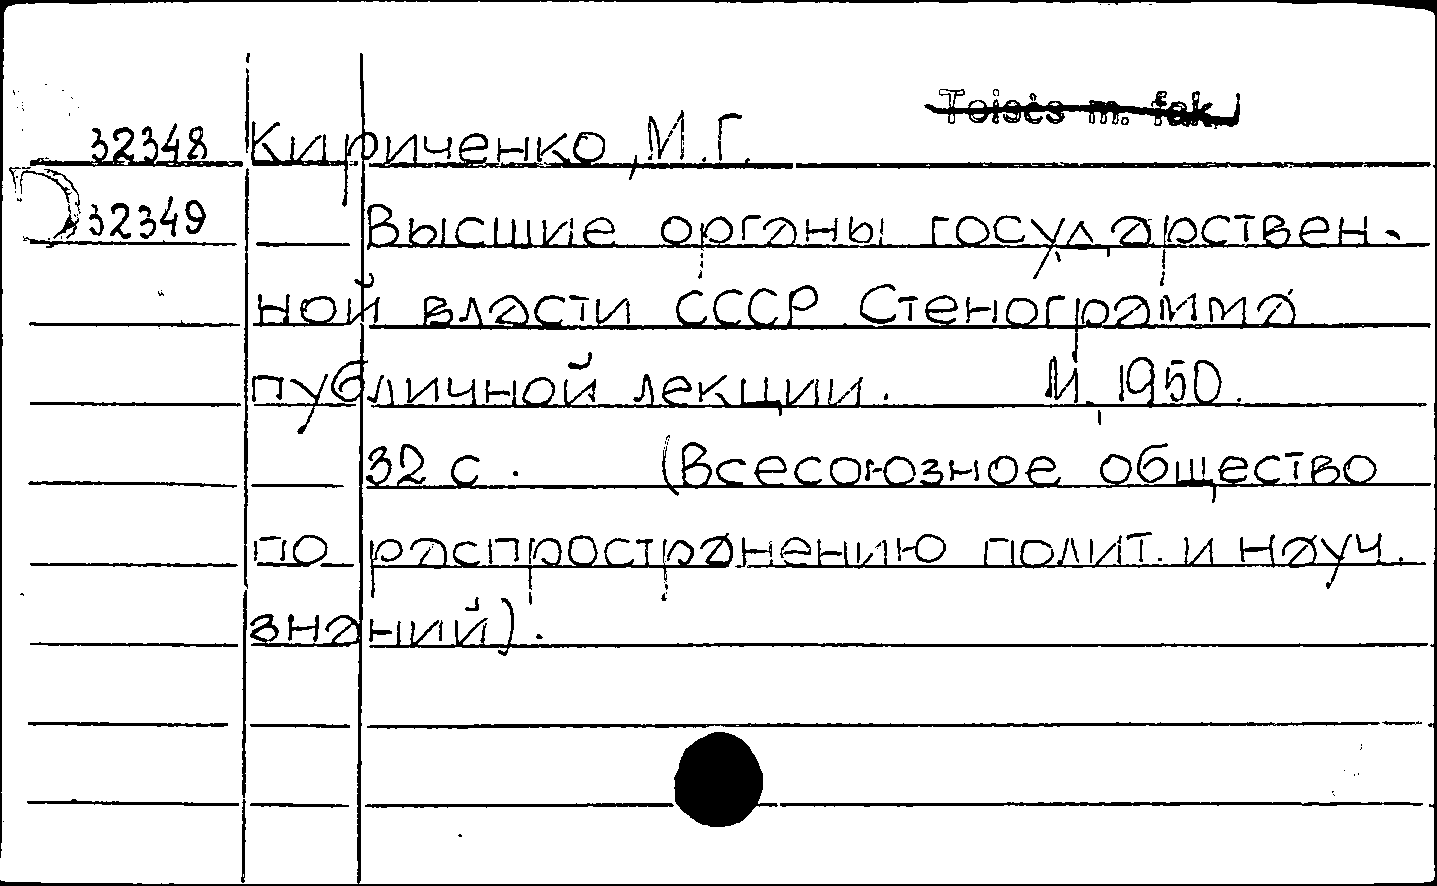 Teisės m. fak.
32348 Кириченко, М.Г.
32349 Высшие органы государствен-
ной власти СССР Стенограмма
публичной лекции. М., 1950.
32 с. (Всесоюзное общество
по распространению полит. и науч.
знаний).